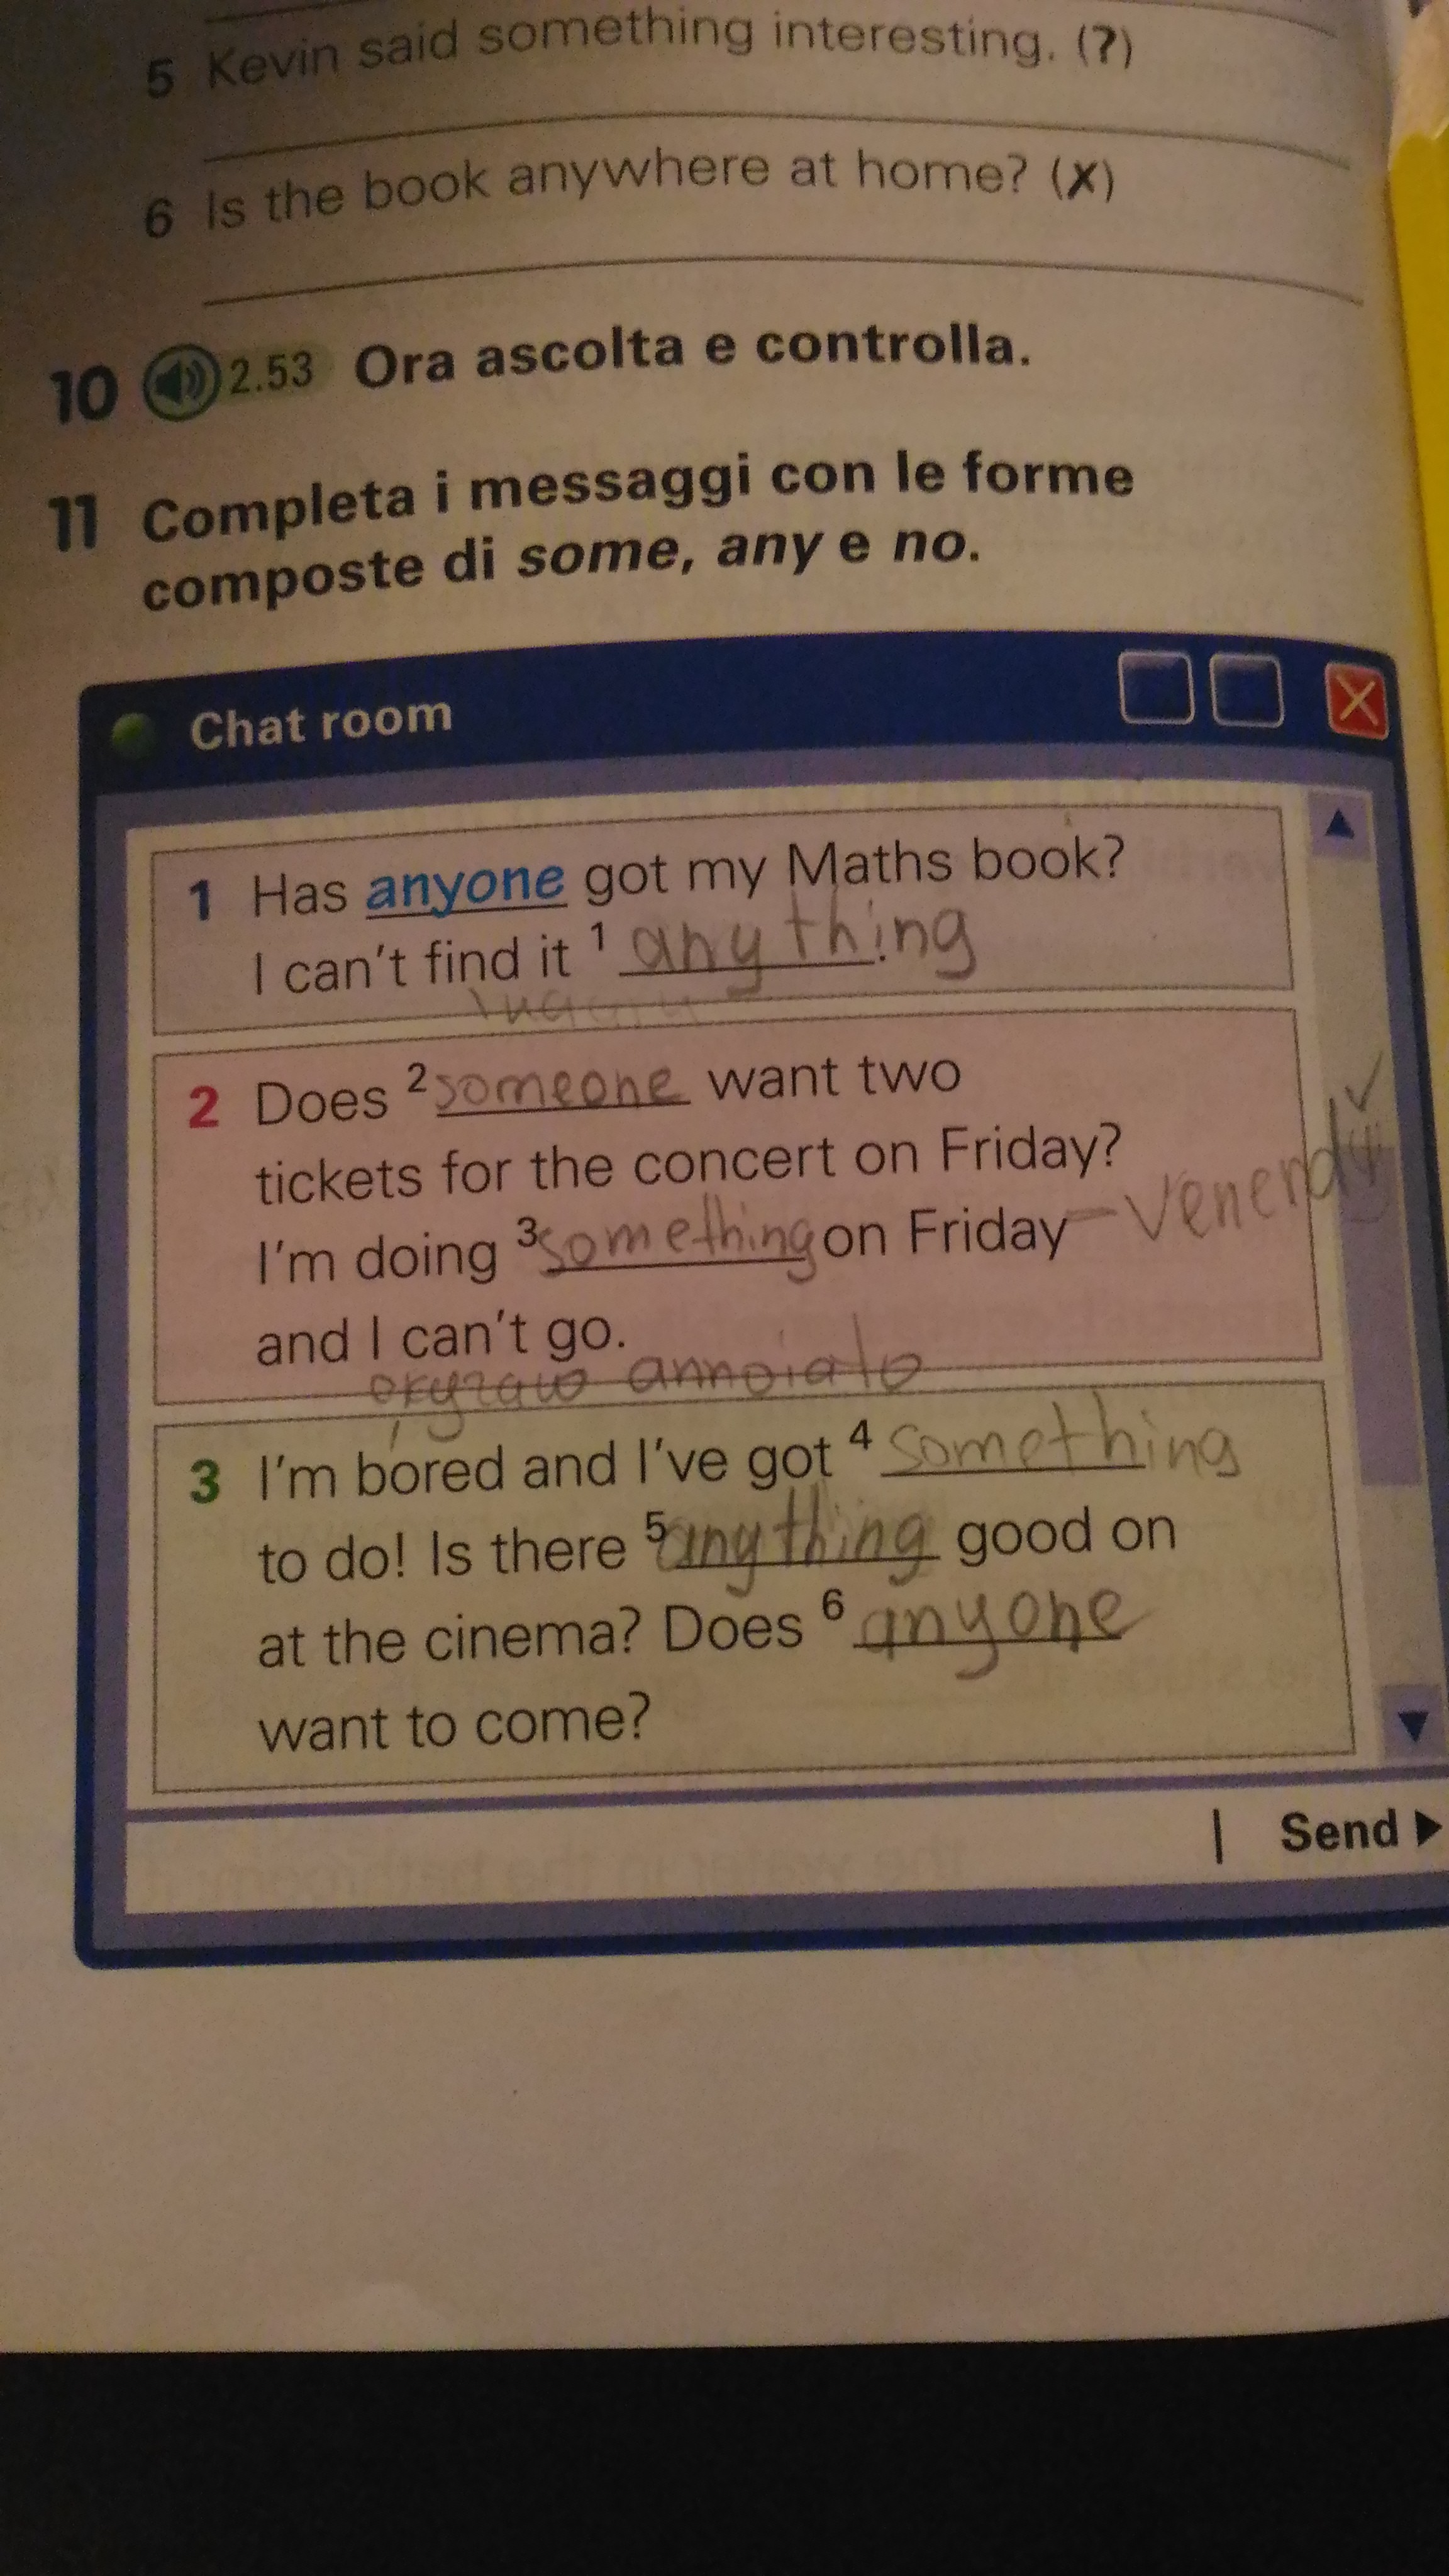 5 Kevin said something interesting. (?)
6 Is the book anywhere at home? (X)
10 2.53 Ora ascolta e controlla.
11 Completa i messaggi con le forme
composte di some, any e no.
Chat room
1 Has anyone got my Maths book?
I can't find it 1 anything.
2 Does 2 someone want two
tickets for the concert on Friday?
I'm doing 3 something on Friday - Venerdì
and I can't go.
annoiato
3 I'm bored and I've got 4 something
to do! Is there 5 anything good on
at the cinema? Does 6 anyone
want to come?
Send